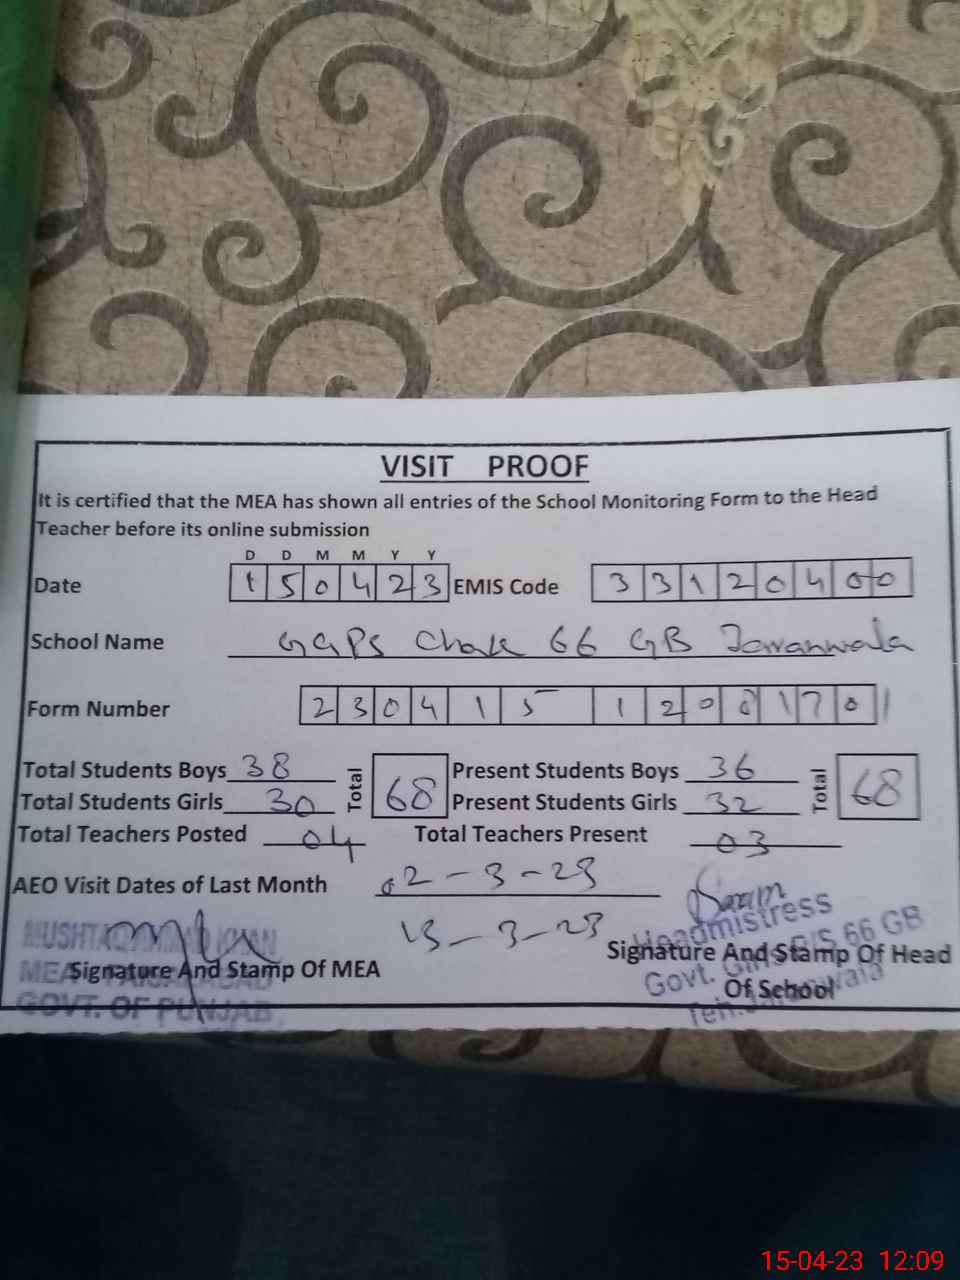 VISIT PROOF
It is certified that the MEA has shown all entries of the School Monitoring Form to the Head
Teacher before its online submission
D D M M Y Y
Date 1 5 0 4 2 3 EMIS Code 3 3 1 2 0 4 0 0
School Name GGPS Chak 66 GB Jaranwala
Form Number 2 3 0 4 1 5 1 2 0 0 1 7 0 1
Total Students Boys 38 Total 68 Present Students Boys 36 Total 68
Total Students Girls 30 Present Students Girls 32
Total Teachers Posted 04 Total Teachers Present 03
AEO Visit Dates of Last Month 02-3-23
13-3-23
Headmistress
MUSHTAQ KHAN
Signature And Stamp Of MEA
MEA FAISALABAD
GOVT. OF PUNJAB
Signature And Stamp Of Head
Of School
Govt. Girls P/S 66 GB
Teh. Jaranwala
15-04-23 12:09